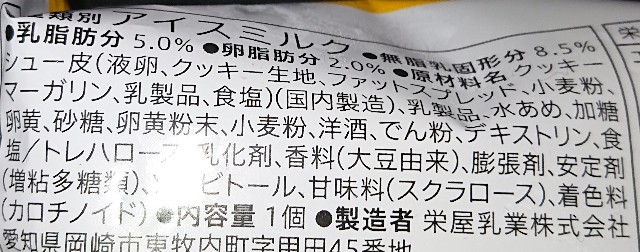 類別 アイスミルク
●乳脂肪分 5.0% ●卵脂肪分 2.0% ●無脂乳固形分 8.5%
●原材料名 クッキー
シュー皮(液卵、クッキー生地、ファットスプレッド、小麦粉、
マーガリン、乳製品、食塩)(国内製造)、乳製品、水あめ、加糖
卵黄、砂糖、卵黄粉末、小麦粉、洋酒、でん粉、デキストリン、食
塩/トレハロース、乳化剤、香料(大豆由来)、膨張剤、安定剤
(増粘多糖類)、ソルビトール、甘味料(スクラロース)、着色料
(カロチノイド) ●内容量 1個 ●製造者 栄屋乳業株式会社
愛知県岡崎市東牧内町字甲田45番地
栄